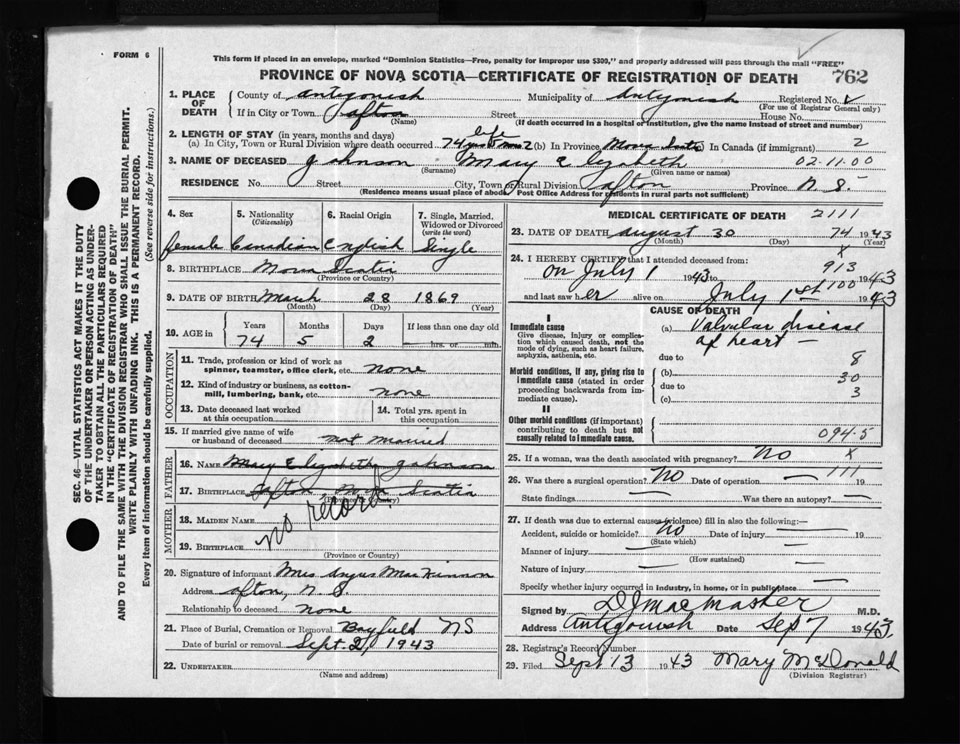 FORM 6
This form if placed in an envelope, marked "Dominion Statistics—Free, penalty for improper use $300," and properly addressed will pass through the mail "FREE"
PROVINCE OF NOVA SCOTIA—CERTIFICATE OF REGISTRATION OF DEATH 762
1. PLACE OF DEATH County of Antigonish Municipality of Antigonish Registered No.
(For use of Registrar General only)
If in City or Town Afton Street House No.
(Name) (If death occurred in a hospital or institution, give the name instead of street and number)
2. LENGTH OF STAY (in years, months and days) life
(a) In City, Town or Rural Division where death occurred 74 yrs 5 mos 2 (b) In Province Nova Scotia (c) In Canada (if immigrant) 2
3. NAME OF DECEASED Johnson Mary Elizabeth 02-11-00
(Surname) (Given name or names)
RESIDENCE No. Street City, Town or Rural Division Afton Province N. S.
(Residence means usual place of abode. Post Office Address for residents in rural parts not sufficient)
4. Sex 5. Nationality (Citizenship) 6. Racial Origin 7. Single, Married, Widowed or Divorced (write the word)
female Canadian English Single
8. BIRTHPLACE Nova Scotia
(Province or Country)
9. DATE OF BIRTH March 28 1869
(Month) (Day) (Year)
10. AGE in Years Months Days If less than one day old
74 5 2 hrs. or min.
OCCUPATION
11. Trade, profession or kind of work as spinner, teamster, office clerk, etc. none
12. Kind of industry or business, as cotton-mill, lumbering, bank, etc. none
13. Date deceased last worked at this occupation
14. Total yrs. spent in this occupation
15. If married give name of wife or husband of deceased not married
FATHER
16. NAME Mary Elizabeth Johnson
17. BIRTHPLACE Afton, Nova Scotia
(Province or Country)
MOTHER
18. MAIDEN NAME
no record.
19. BIRTHPLACE
(Province or Country)
20. Signature of informant Mrs Angus MacKinnon
Address Afton, N. S.
Relationship to deceased none
21. Place of Burial, Cremation or Removal Bayfield NS
Date of burial or removal Sept. 2, 1943
22. UNDERTAKER
(Name and address)
MEDICAL CERTIFICATE OF DEATH 2111
23. DATE OF DEATH August 30 74 1943
(Month) (Day) (Year)
X
24. I HEREBY CERTIFY that I attended deceased from: 913
on July 1 1943 to 1943
and last saw her alive on July 1st 100 1943
CAUSE OF DEATH
I
Immediate cause
Give disease, injury or complication which caused death, not the mode of dying, such as heart failure, asphyxia, asthenia, etc.
(a) Valvular disease of heart —
due to 8
Morbid conditions, if any, giving rise to immediate cause (stated in order proceeding backwards from immediate cause).
(b) 30
due to 3
(c)
II
Other morbid conditions (if important) contributing to death but not causally related to immediate cause.
094-5
25. If a woman, was the death associated with pregnancy? No X
26. Was there a surgical operation? No Date of operation — 111 19
State findings — Was there an autopsy? —
27. If death was due to external causes (violence) fill in also the following:—
Accident, suicide or homicide? No Date of injury — 19
(State which)
Manner of injury —
(How sustained)
Nature of injury — —
Specify whether injury occurred in industry, in home, or in public place —
Signed by D J MacMaster M.D.
Address Antigonish Date Sep 7 1943
28. Registrar's Record Number
29. Filed Sept 13 1943 Mary McDonald
(Division Registrar)
SEC. 46—VITAL STATISTICS ACT MAKES IT THE DUTY
OF THE UNDERTAKER OR PERSON ACTING AS UNDER-
TAKER TO OBTAIN ALL THE PARTICULARS REQUIRED
IN THE "CERTIFICATE OF REGISTRATION OF DEATH"
AND TO FILE THE SAME WITH THE DIVISION REGISTRAR WHO SHALL ISSUE THE BURIAL PERMIT.
WRITE PLAINLY WITH UNFADING INK. THIS IS A PERMANENT RECORD.
Every item of information should be carefully supplied. (See reverse side for instructions.)